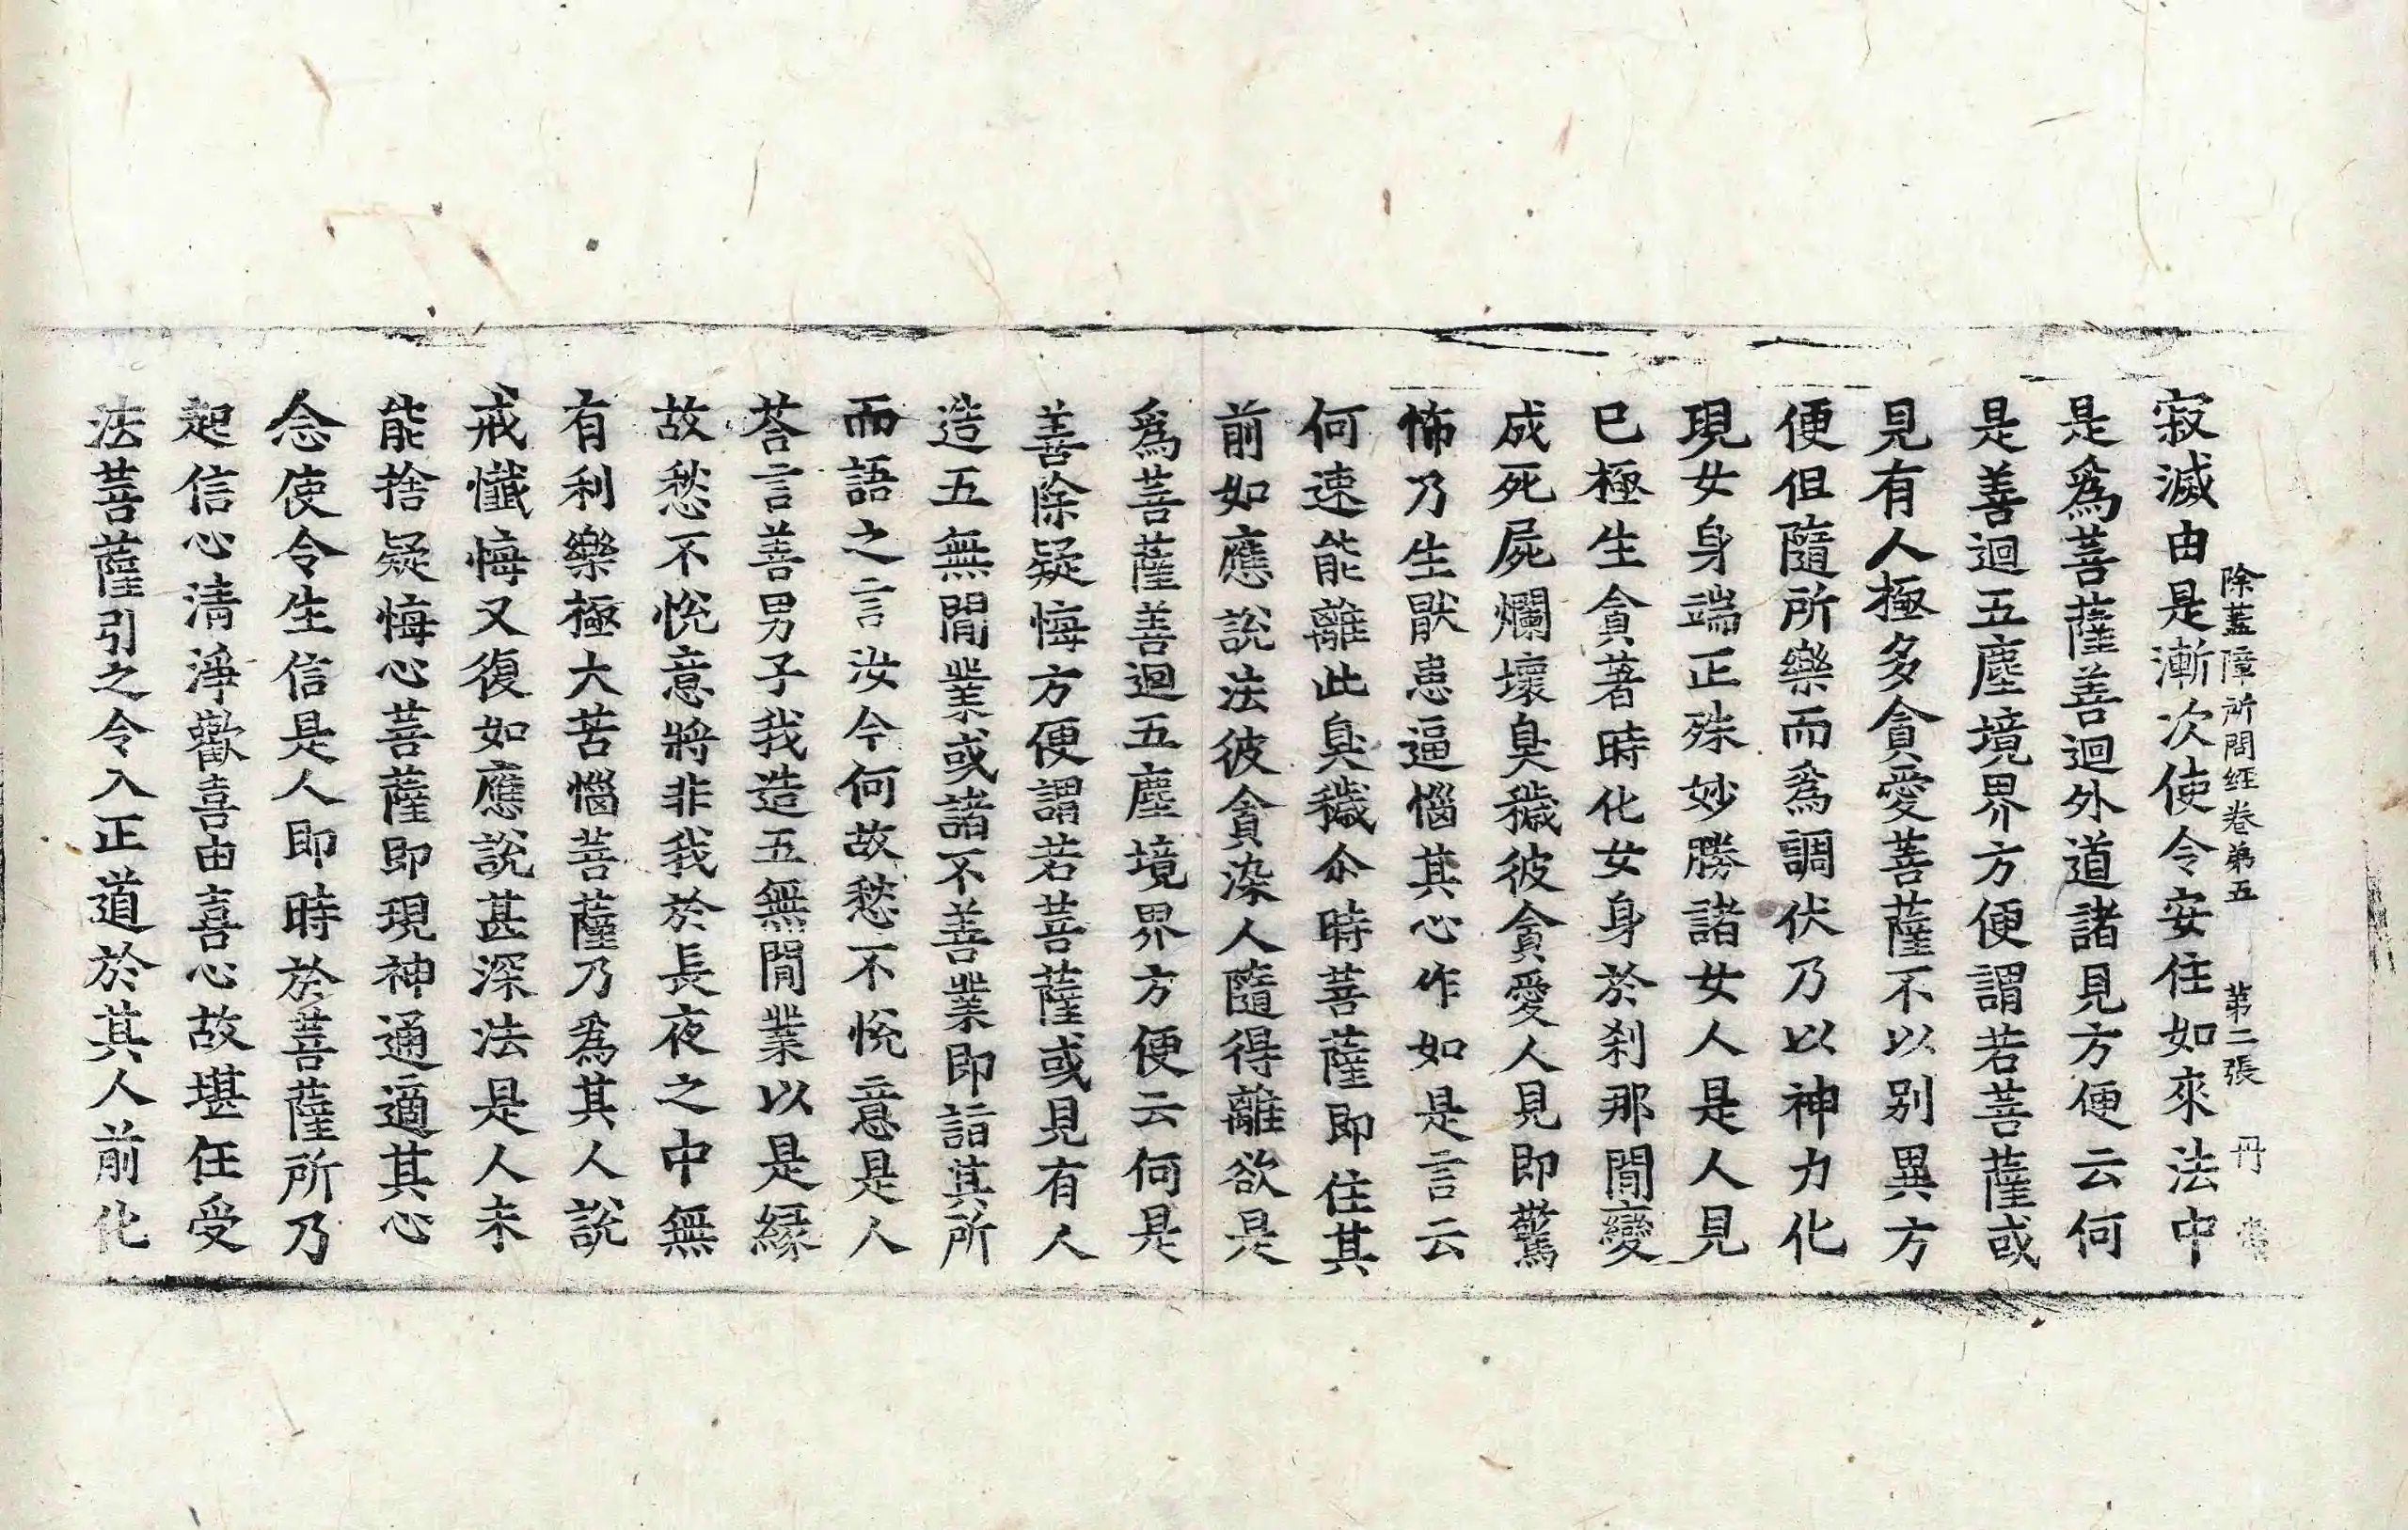 除蓋障所問經卷第五　第二張　丹
寂滅由是漸次使令安住如來法中
是爲菩薩善迴外道諸見方便云何
是善迴五塵境界方便謂若菩薩或
見有人極多貪愛菩薩不以別異方
便但隨所樂而爲調伏乃以神力化
現女身端正殊妙勝諸女人是人見
已極生貪著時化女身於刹那間變
成死屍爛壞臭穢彼貪愛人見即驚
怖乃生厭患逼惱其心作如是言云
何速能離此臭穢尒時菩薩即住其
前如應說法彼貪染人隨得離欲是
爲菩薩善迴五塵境界方便云何是
善除疑悔方便謂若菩薩或見有人
造五無間業或諸不善業即詣其所
而語之言汝今何故愁不悅意是人
荅言善男子我造五無間業以是縁
故愁不悅意將非我於長夜之中無
有利樂極大苦惱菩薩乃爲其人說
戒懺悔又復如應說甚深法是人未
能捨疑悔心菩薩即現神通適其心
念使令生信是人即時於菩薩所乃
起信心清淨歡喜由喜心故堪任受
法菩薩引之令入正道於其人前化